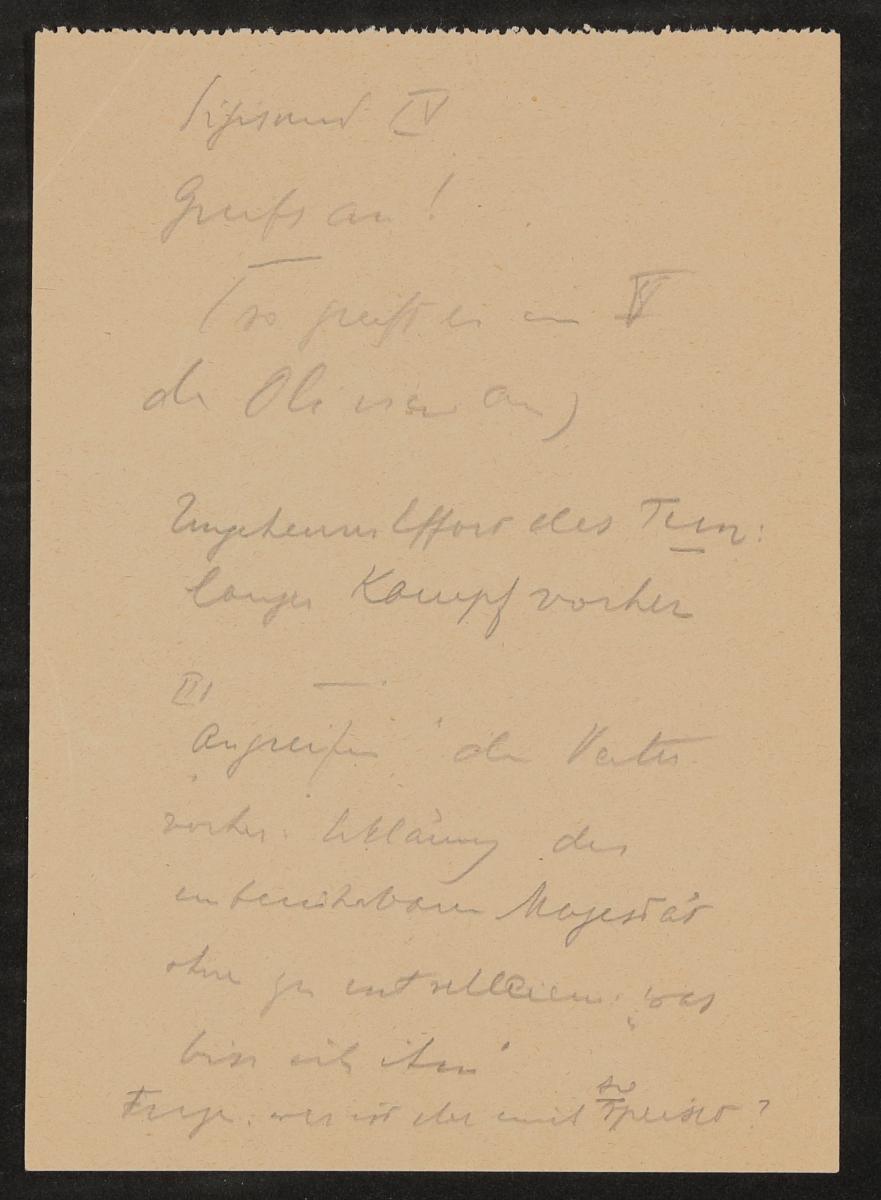 Sigismund IV
Greifs an!
(so greift er im V
den Olivier an)
Ungeheurer Effort des Tuns:
langer Kampf vorher
III
"Angreifen" den Vater
vorher: Erklärung der
unberührbaren Majestät
ohne zu
bin ich ihm"
Frage: wer ist der mit so